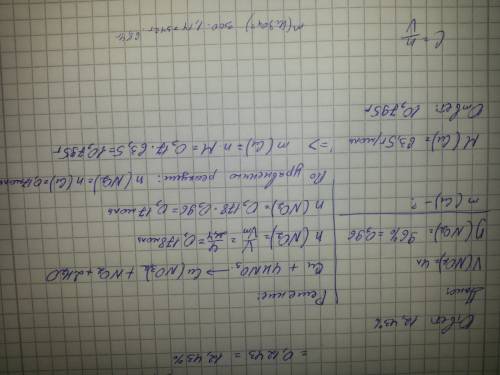 = 0,1243 = 12,43%
Ответ 12,43%
Дано:
V(NO₂) = 4л
η(NO₂) = 96% = 0,96
m(Cu) - ?
M(Cu) = 63,5 г/моль
Решение:
Cu + 4HNO₃ → Cu(NO₃)₂ + NO₂ + 2H₂O
n(NO₂) = V/Vm = 4/22,4 = 0,178 моль
n(NO₂) = 0,178 · 0,96 = 0,17 моль
По уравнению реакции: n(NO₂) = n(Cu) = 0,17 моль
=> m(Cu) = n · M = 0,17 · 63,5 = 10,795г
Ответ 10,795г
C = n/V